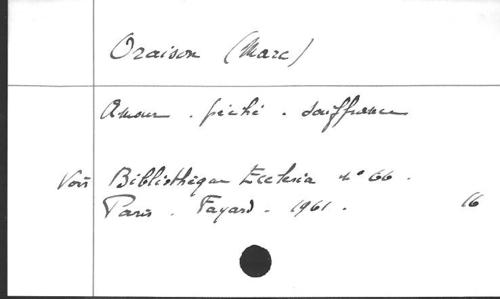 Oraison (Marc)
Amour . péché . souffrance
Voir Bibliothèque Ecclesia n° 66 .
Paris . Fayard . 1961 . 16